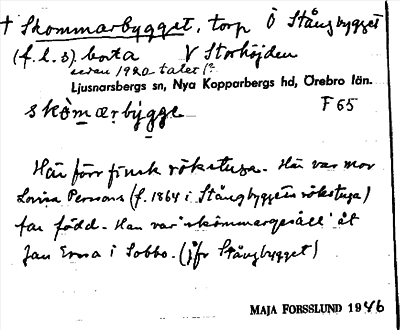 † Skommarbygget, torp Ö Stångbygget
(f. l. s). borta V Storhöjden
sedan 1920-talet (?
Ljusnarsbergs sn, Nya Kopparbergs hd, Örebro län.
skòmærbýgge F 65
Här förr finsk rökstuga. Här var mor
Lovisa Persons (f. 1864 i Stångbyggets rökstuga)
far född. Han var "skommargesäll" åt
Jan Ersa i Sobbo. (jfr Stångbygget)
MAJA FORSSLUND 1946